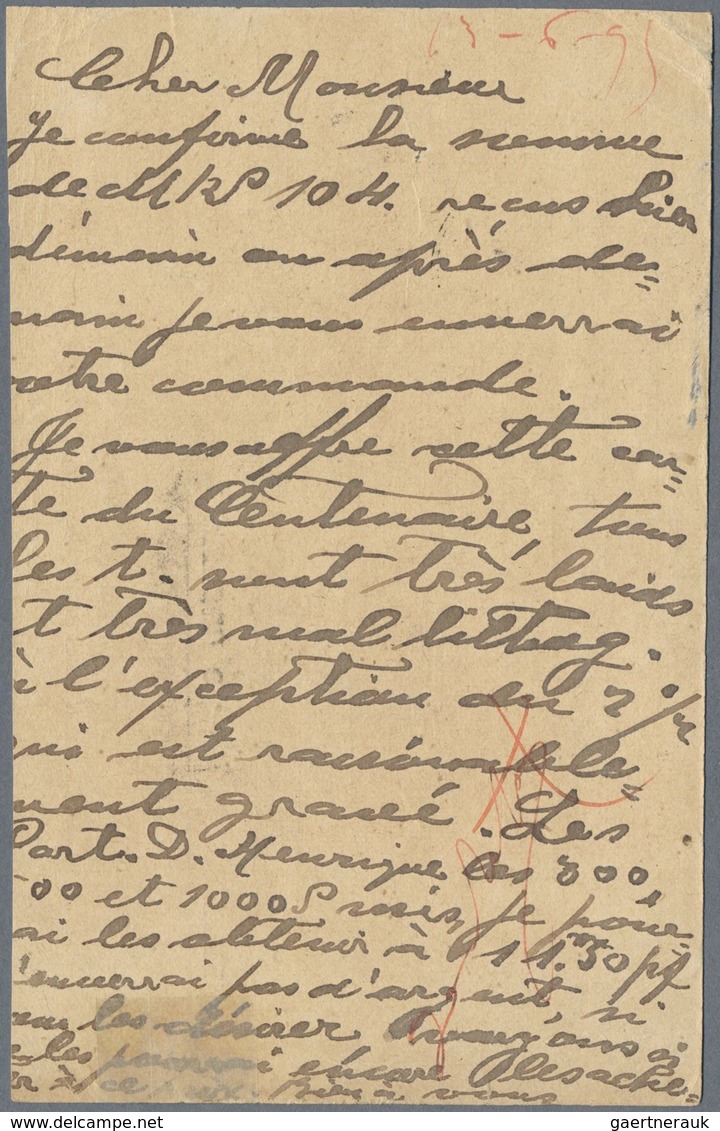 13-6-95
Cher Monsieur
Je confirme la somme
de MKS 104. recus hier
démain ou après de=
main je vous enverrai
votre commande.
Je vous offre cette car=
te du Centenaire, tous
les t. sont très laids
t très mal lithog.
à l'exception du
qui est raisonable=
ment gravé. Les
Port. D. Henrique les 300,
500 et 1000 S mis, je pour=
ai les obtenir à 11.50 pf
enverrai pas d'argent, si
les désirer
les pourrai encore
ce prix. Bien à vous
gaertnerauk | www.delcampe.net